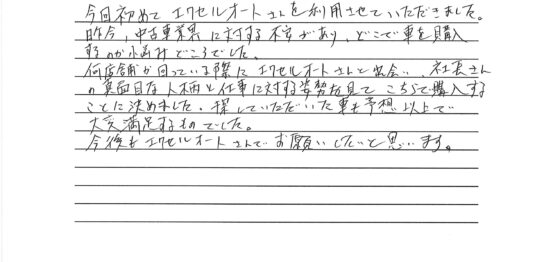 今回初めてエクセルオートさんを利用させていただきました。
昨今、中古車業界に対する不安があり、どこで車を購入
するのか悩みどころでした。
何店舗か回っている際にエクセルオートさんと出会い、社長さん
の真面目な人柄と仕事に対する姿勢を見てこちらで購入する
ことに決めました。探していただいた車も予想以上で
大変満足するものでした。
今後もエクセルオートさんでお願いしたいと思います。